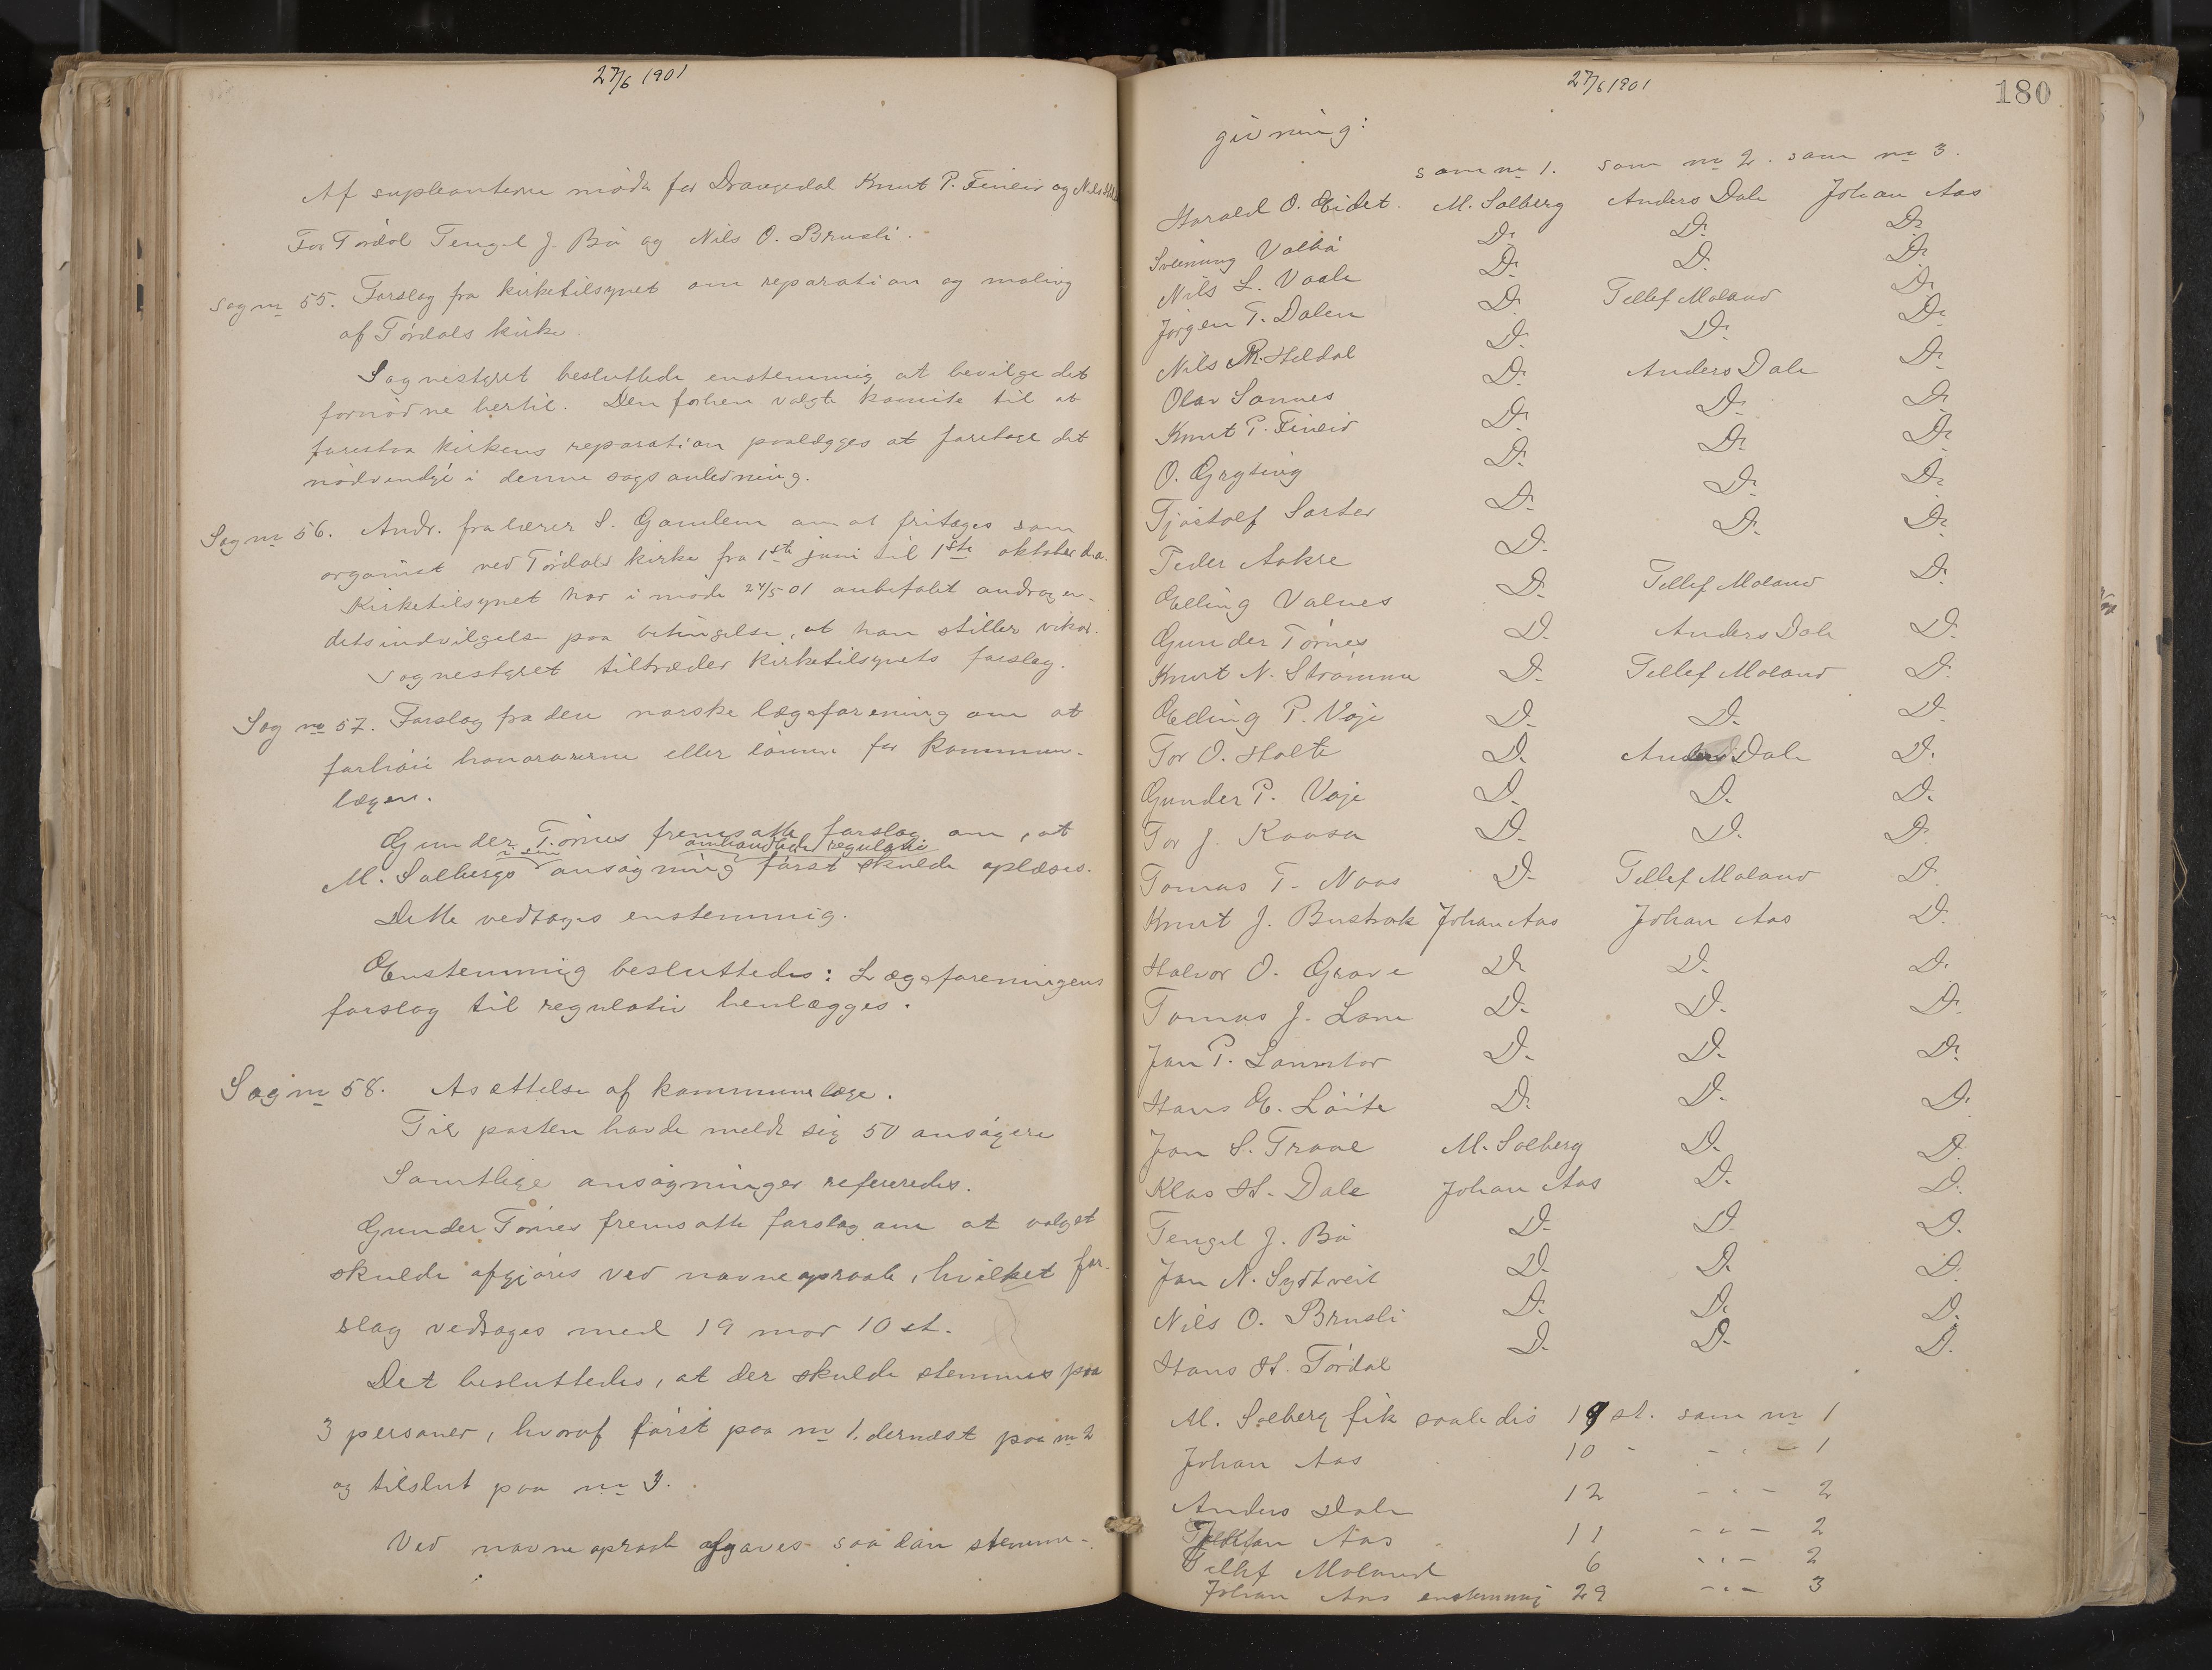 27/6 1901
Af supleanterne mödte for Drangedal Knut P. Fineid og Nils
For Tördal Tengel J. Bö og Nils O. Brusli.
Sag no 55. Forslag fra kirketilsynet om reparation og maling
af Tördals kirke.
Sognestyret besluttede enstemmig at bevilge det
fornödne hertil. Den forhen valgte komite til at
forestaa kirkens reparation paalægges at foretage det
nödvendige i denne sags anledning.
Sag no 56. Andr. fra lærer S. Gamlem om at fritages som
organist ved Tördals kirke fra 1ste juni til 1ste oktober d.a.
Kirketilsynet har i möde 24/5 01 anbefalet andragen-
dets indvilgelse paa betingelse, at han stiller vikar.
Sognestyret tiltræder kirketilsynets forslag.
Sag no 57. Forslag fra den norske lægeforening om at
forhöie honorarerne eller lönnen for kommune-
lægen.
Gunder Törnes fremsatte forslag om, at
i sin omhandlede regulativ
M. Solbergs ansögning först skulde oplæses.
Dette vedtoges enstemmig.
Enstemmig besluttedes: Lægeforeningens
forslag til regulativ henlægges.
Sag no 58. Asættelse af kommunelæge.
Til posten havde meldt sig 50 ansögere
Samtlige ansögninger refereredes.
Gunder Törnes fremsatte forslag om at valget
skulde afgjöres ved navneopraab, hvilket for-
slag vedtoges med 19 mod 10 st.
Det besluttedes, at der skulde stemmes paa
3 personer, hvoraf först paa no 1, dernæst paa no 2
og tilslut paa no 3.
Ved navneopraab afgaves saadan stemme-
27/6 1901
180
givning:
som no 1. som no 2. som no 3.
Harald O. Eidet. M. Solberg Anders Dale Johan Aas
Sveinung Valbö D. D. D.
Nils L. Vaale D. D. D.
Jörgen T. Dalen D. Tellef Moland D.
Nils R. Heldal D. D. D.
Olav Sannes D. Anders Dale D.
Knut P. Fineid D. D. D.
O. Gryting D. D. D.
Tjöstolf Sarter D. D. D.
Peder Aakre D. D. D.
Elling Valnes D. Tellef Moland D.
Gunder Törnes D. Anders Dale D.
Knut N. Strömme D. Tellef Moland D.
Elling P. Voje D. D. D.
Tor O. Holte D. Anders Dale D.
Gunder P. Voje D. D. D.
Tor J. Kaasa D. D. D.
Tomas T. Naas D. Tellef Moland D.
Knut J. Bustrak Johan Aas Johan Aas D.
Halvor O. Grave D. D. D.
Tomas J. Lone D. D. D.
Jon P. D. D. D.
Hans E. Löite D. D. D.
Jon S. Traae M. Solberg D. D.
Klas H. Dale Johan Aas D. D.
Tengel J. Bö D. D. D.
Jon N. Sydtveit D. D. D.
Nils O. Brusli D. D. D.
Hans H. Tördal D. D. D.
M. Solberg fik saaledes 19 st. som no 1
Johan Aas 10 - - " - 1
Anders Dale 12 - " - 2
Johan Aas 11 - " - 2
Tellef Moland 6 - " - 2
Johan Aas enstemmig 29 - " - 3